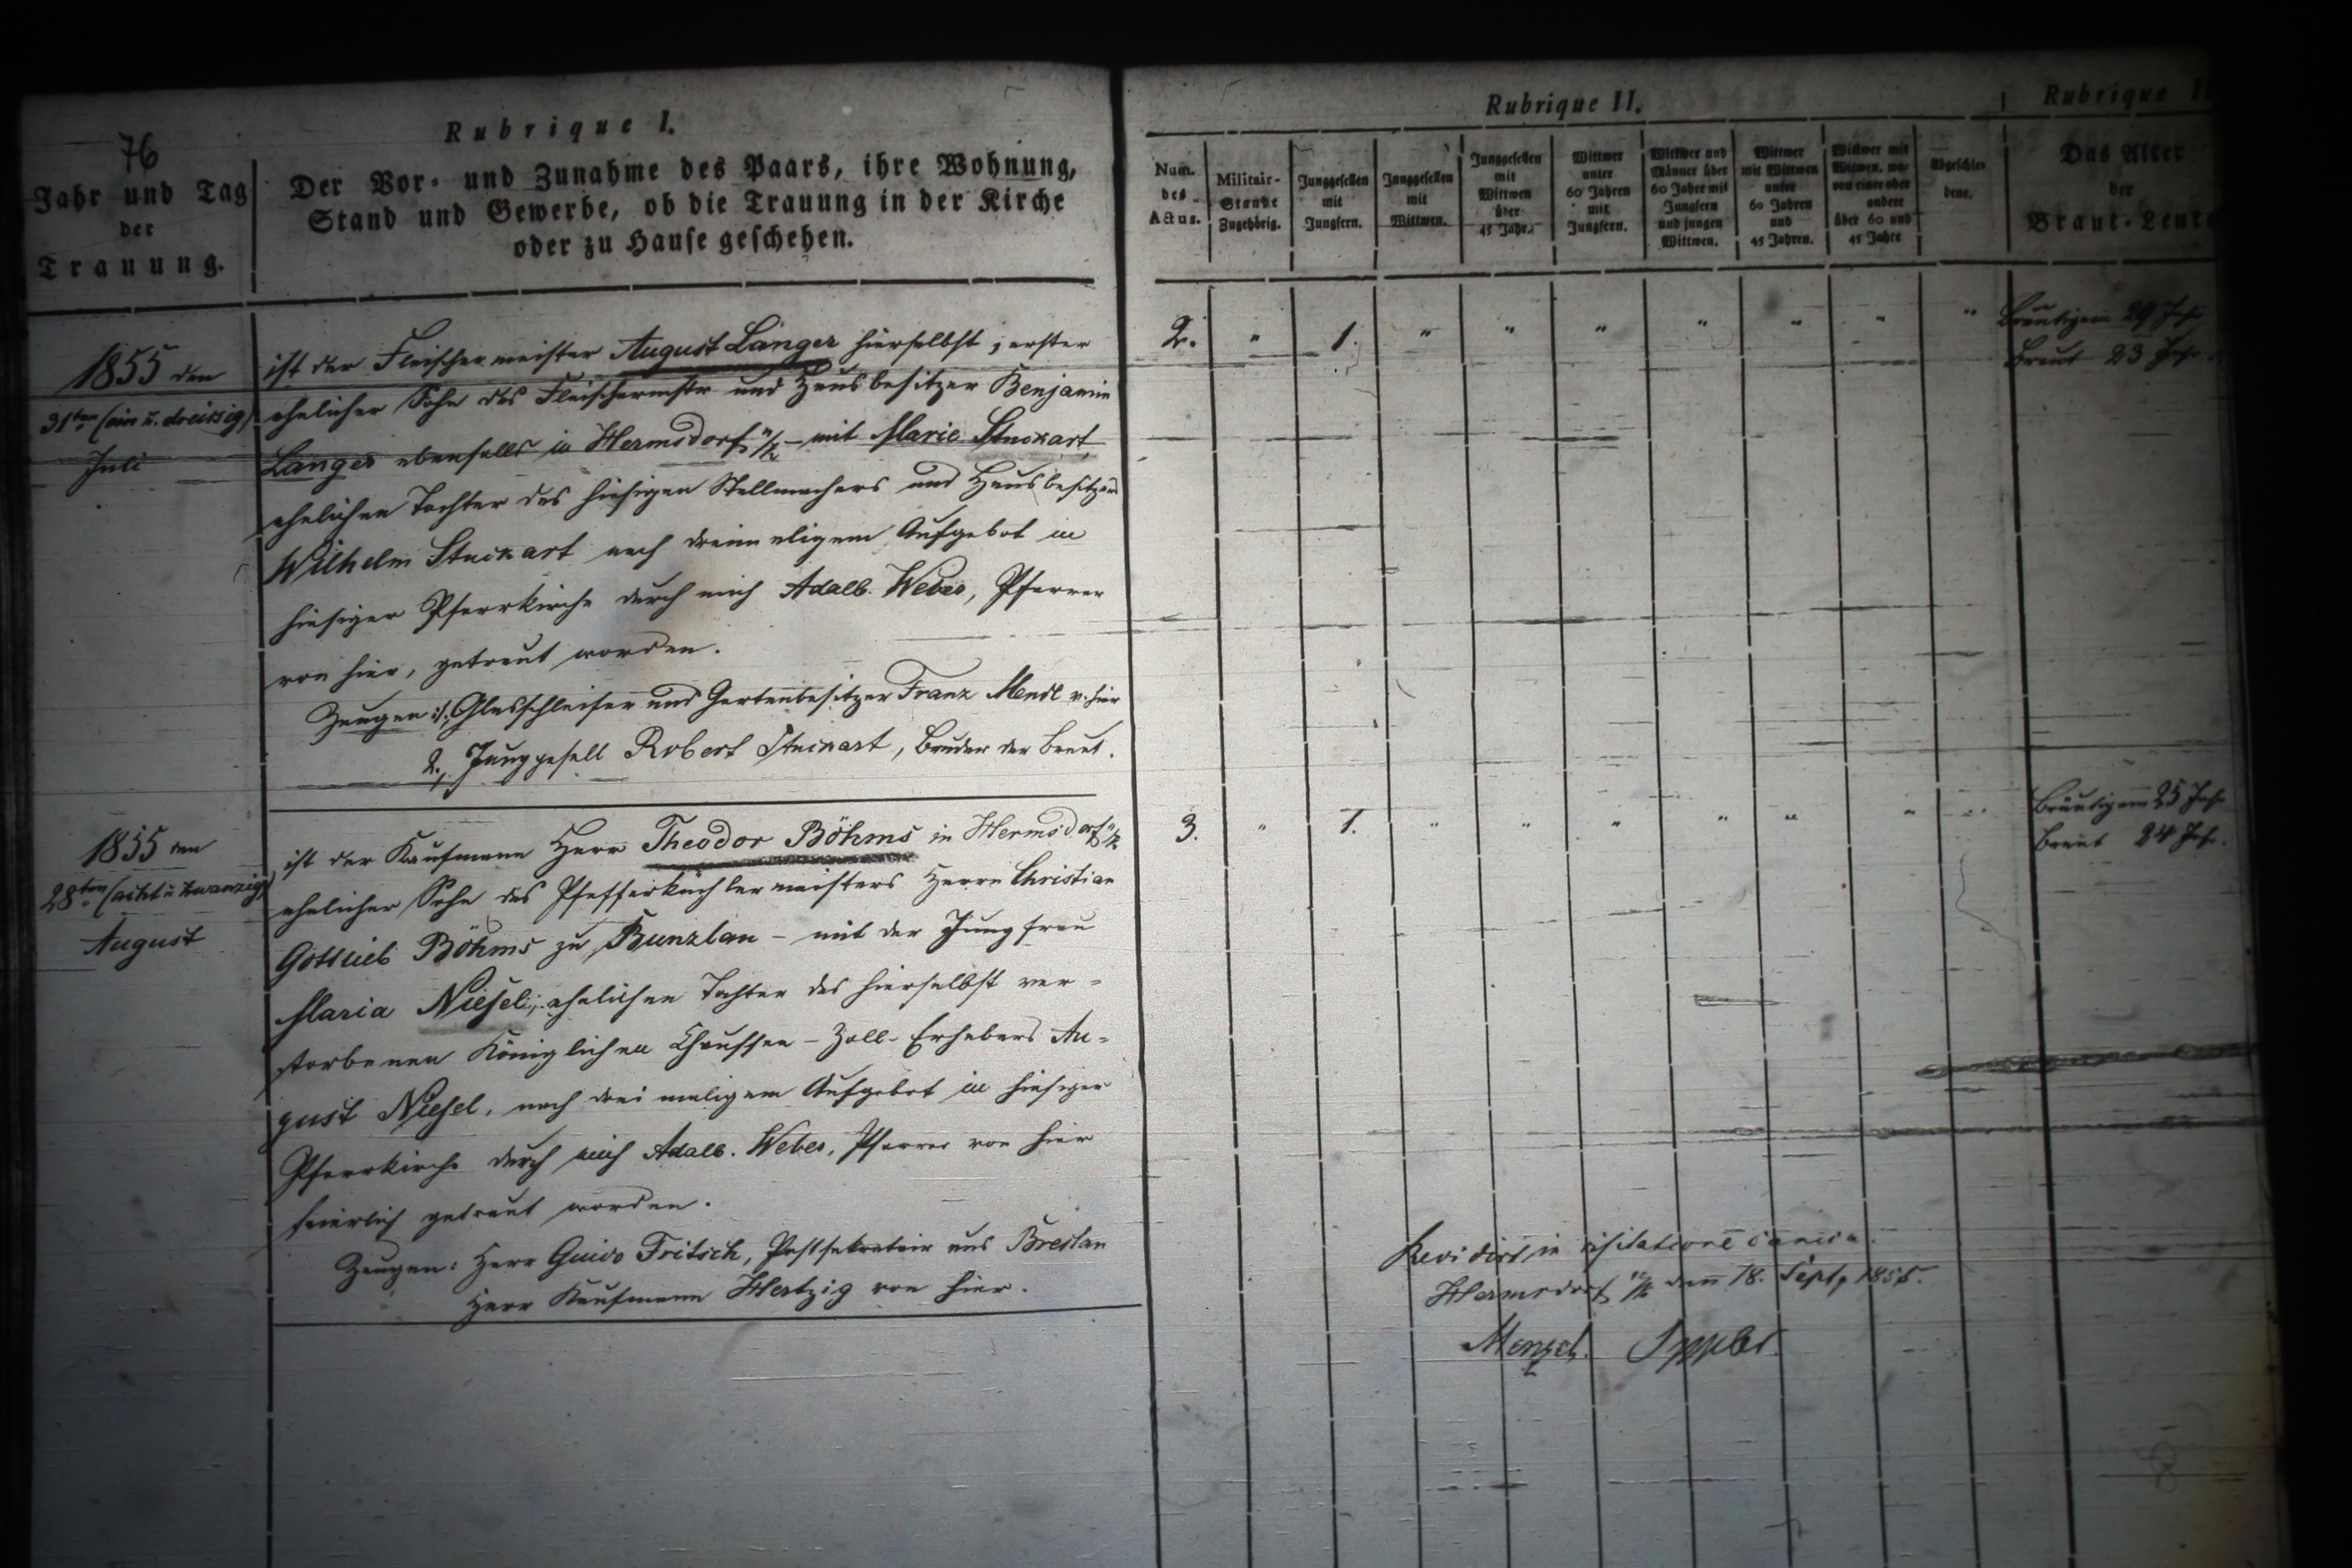 76
Rubrique I.
Jahr und Tag
der
Trauung.
Der Vor- und Zunahme des Paars, ihre Wohnung,
Stand und Gewerbe, ob die Trauung in der Kirche
oder zu Hause geschehen.
1855 den
31ten (ein u. dreissig)
Juli
ist der Fleischermeister August Langer hierselbst, erster
ehelicher Sohn des Fleischermstr und Hausbesitzer Benjamin
Langer ebenfalls in Hermsdorf u/k – mit Marie Stuckart
ehelichen Tochter des hiesigen Stellmachers und Hausbesitzers
Wilhelm Stuckart nach dreimaligem Aufgebot in
hiesiger Pfarrkirche durch mich Adalb. Weber, Pfarrer
von hier, getraut worden.
Zeugen: 1, Glasschleifer und Gartenbesitzer Franz Mendl v. hier
2, Junggesell Robert Stuckart, Bruder der Braut.
1855 den
28ten (acht u zwanzig)
August
ist der Kaufmann Herr Theodor Böhms in Hermsdorf u/k
ehelicher Sohn des Pfefferküchlermeisters Herrn Christian
Gottlieb Böhms zu Bunzlau – mit der Jungfrau
Maria Niesel, ehelichen Tochter des hierselbst ver-
storbenen Königlichen Chaussee-Zoll-Erhebers Au-
gust Niesel, nach dreimaligem Aufgebot in hiesiger
Pfarrkirche durch mich Adalb. Weber, Pfarrer von hier
feierlich getraut worden.
Zeugen: Herr Guido Fritsch, Postsekretair aus Breslau
Herr Kaufmann Hertzig von hier.
Rubrique II.
Num. des Actus.
Militair-Stande Zugehörig.
Junggesellen mit Jungfern.
Junggesellen mit Wittwen.
Junggesellen mit Wittwen über 45 Jahr.
Wittwer unter 60 Jahren mit Jungfern.
Wittwer und Männer über 60 Jahre mit Jungfern und jungen Wittwen.
Wittwer mit Wittwen unter 60 Jahren und 45 Jahren.
Wittwer mit Witwen, wovon einer oder andere über 60 und 45 Jahre
Abgeschiedene.
Rubrique
Das Alter
der
Braut-Leute
2. " 1. " " " " " " "
Bräutigam 29 Jahr
Braut 23 Jahr.
3. " 1. " " " " " " "
Bräutigam 25 Jahr
Braut 24 Jahr.
Revidirt in visitatione
Hermsdorf u/k den 18. Sept. 1855.
Menzel.